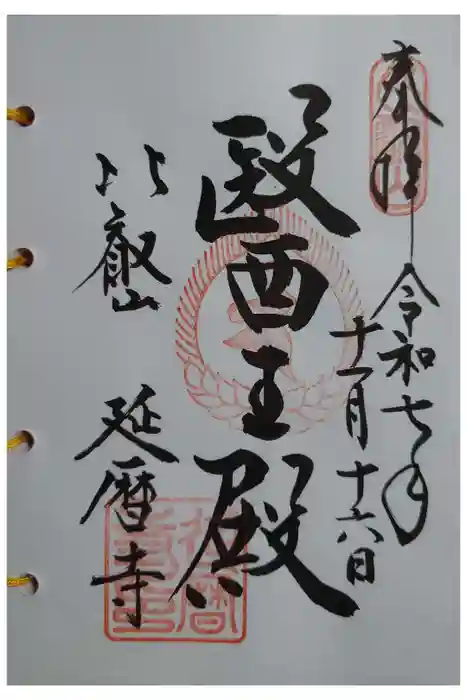 奉拝
令和七年
十一月十六日
醫王殿
比叡山
延暦寺